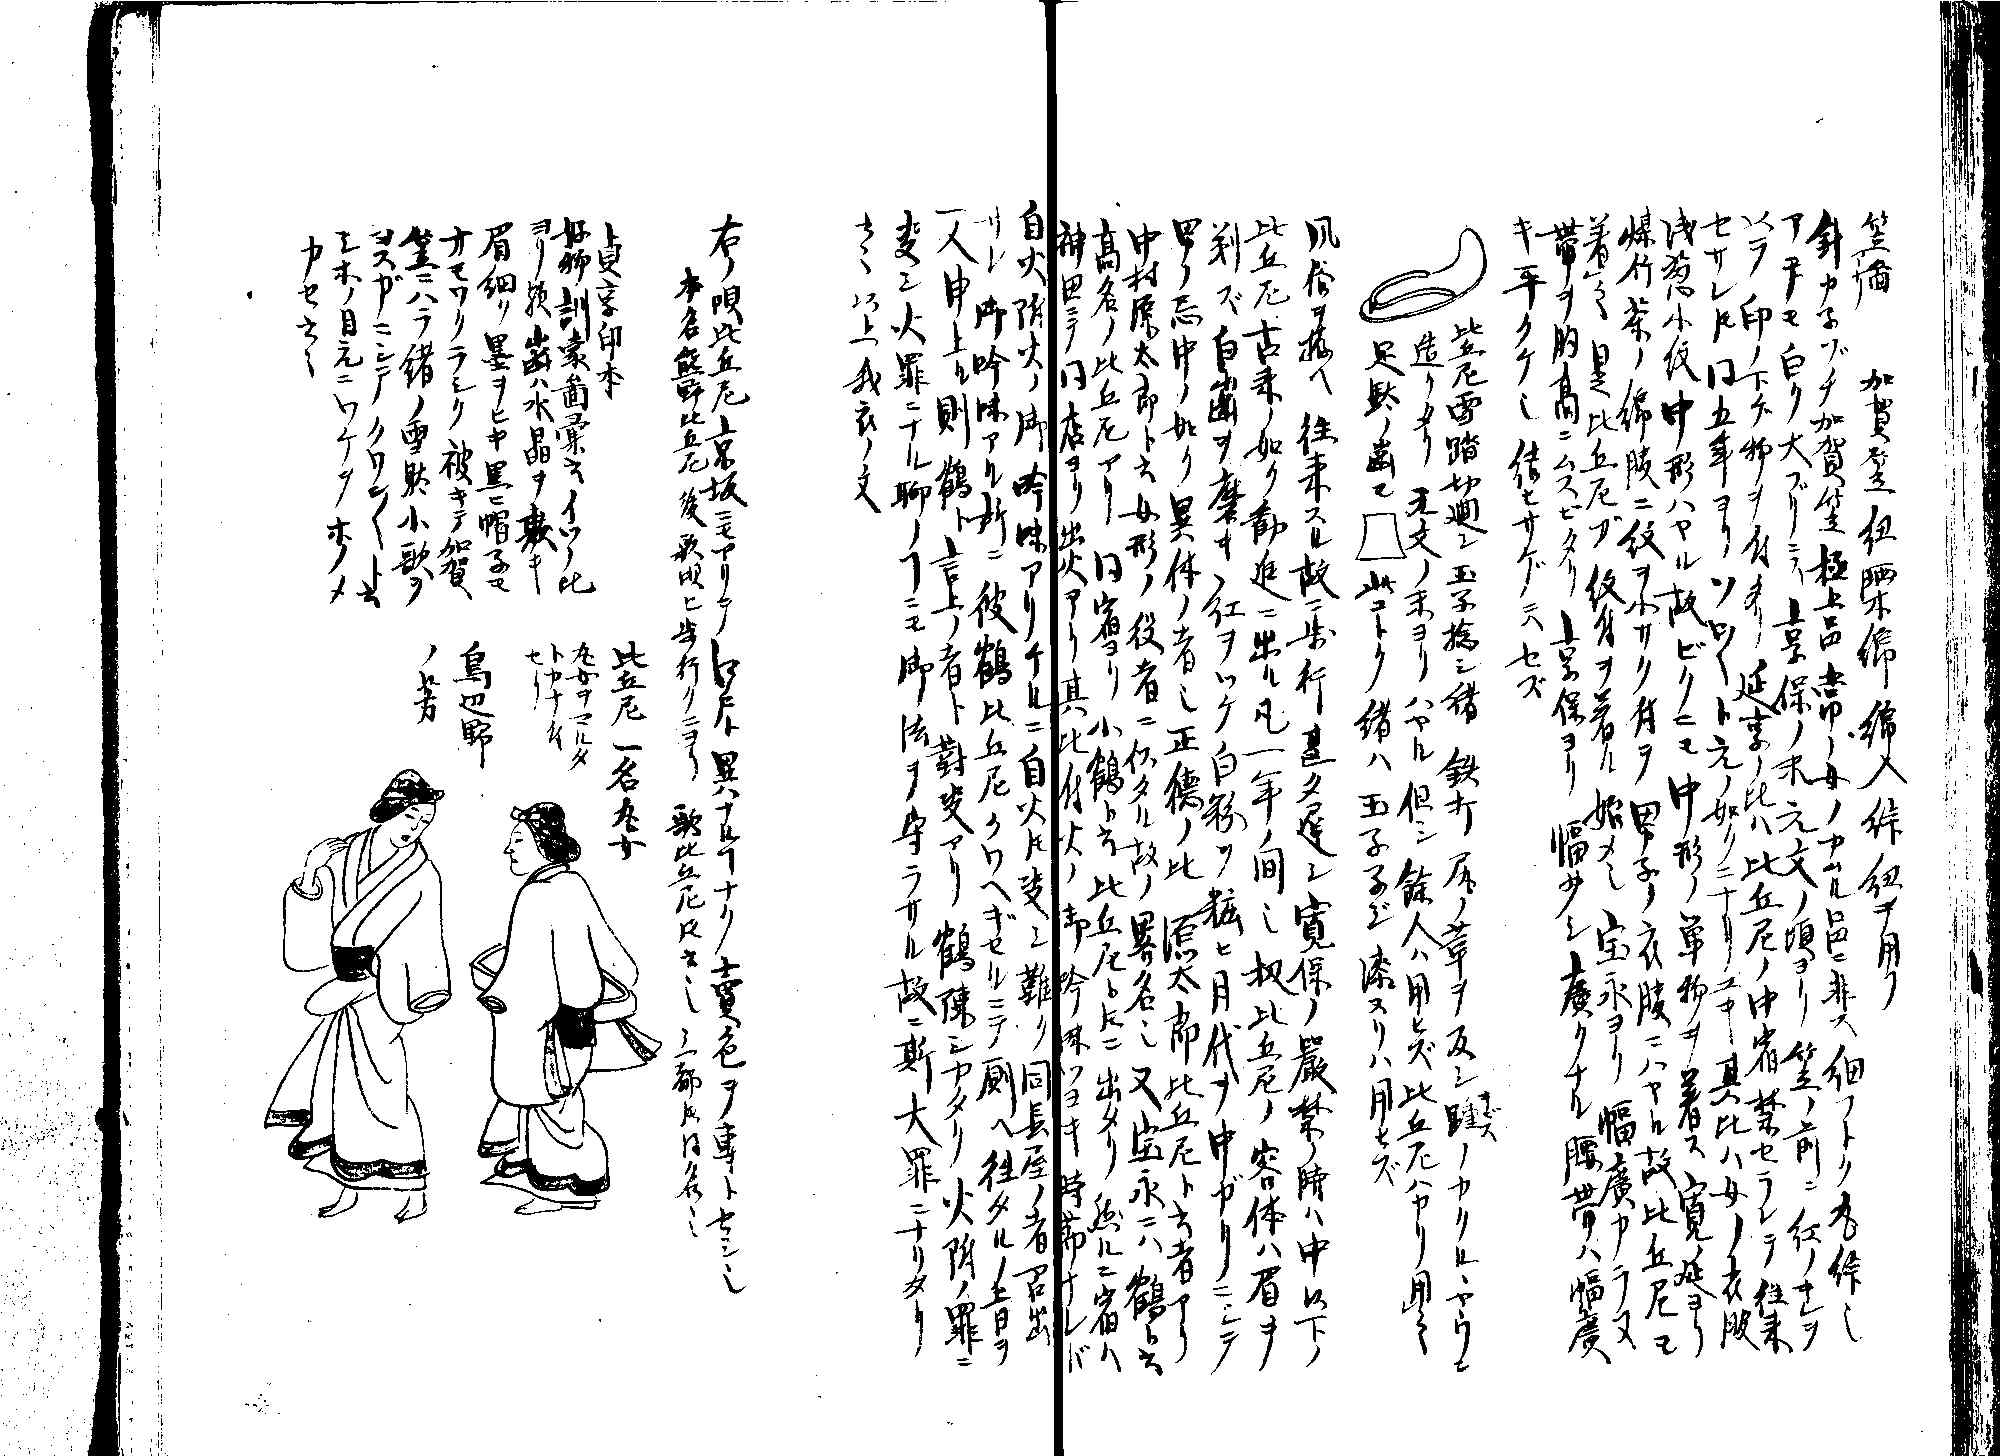 笠ハ 加賀笠 紐晒木綿 綿入絎紐ヲ用フ
針カネヅチ加賀笠極上品 常ノ女ノカムル笠ニ非ズ 細フトク丸絎也
アテモ白ク大ブリニス 享保ノ末元文ノ頃ヨリ笠ノ前ニ紅ノキレヲ
以テ印ノ下ゲ物ヲ付タリ 延享ノ比ハ比丘尼ノ中宿禁セラレテ往来
セサレトモ 同五年ヨリソロ〱ト元ノ如クニナリユキ 其比ハ女ノ衣服
浅葱小紋中形ハヤル故 ビクニモ中形ノ単物ヲ着ス 寛延ヨリ
煤竹茶ノ綿服ニ紋ヲ小サク付ヲ 甲子ノ衣服ニハヤル故 比丘尼モ
着之 是比丘尼ガ紋付ヲ着ル始メ也 宝永ヨリ幅廣カラヌ
帯ヲ胸高ニムスビタリ 享保ヨリ幅少シ廣クナル 腰帯ハ幅廣
キ平クケ也 結ビサゲニハセズ
比丘尼雪踏切廻シ 玉子捻シ緒 鉄打 尻ノ革ヲ反シ 踵ノカクルヽヤウニ
造リタリ 元文ノ末ヨリハヤル 但シ餘人ハ用ヒズ 比丘尼ハヤリ用之
足駄ノ歯モ 此コトク 緒ハ玉子子ヂ 漆ヌリハ用ヒズ
風俗ヲ拵ヘ往来スル故ニ歩行甚タ遅シ 寛保ノ嚴禁ノ時ハ中以下ノ
比丘尼 古来ノ如ク勧進ニ出ル 凡一年ノ間也 扨比丘尼ノ容体ハ眉ヲ
剃ズ 白歯ヲ磨キ 紅ヲツケ 白粉ヲ粧ヒ 月代ヲ中ガリニシテ
甲ノ忌中ノ如ク異体ノ者也 正徳ノ比 源太郎比丘尼ト云者アリ
中村源太郎ト云女形ノ役者ニ似タル故ノ異名也 又宝永ニハ鶴ト云
高名ノ比丘尼アリ 同宿ヨリ小鶴ト云比丘尼トモニ出タリ 然ルニ宿ハ
神田ニテ同店ヨリ出火アリ 其比付火ノ御吟味ツヨキ時節ナレバ
自火附火ノ御吟味アリケルニ 自火トモ定シ難ク 同長屋ノ者召出
サレ御吟味アル所ニ 彼鶴比丘尼クワヘギセルニテ厠ヘ往タルノ旨ヲ
一人申上ル 則鶴ト言上ノ者ト對决アリ 鶴陳シカタク 火附ノ罪ニ
定シ火罪ニナル 聊ノヿニモ御法ヲ守ラサル故ニ斯大罪ニナリタリ
云々 以上我衣ノ文
右ノ唄比丘尼 京坂ニモアリテ江戸ト異ハナルヿナク 賣色ヲ専トセシ也
本名熊野比丘尼 後歌唄ヒ歩行クニヨリ 歌比丘尼トモ云也 三都トモ同名也
貞享印本
好物訓蒙圖彙云 イツノ比
ヨリ 歯ハ水晶ヲ敷キ
眉細ク墨ヲヒキ 黒ニ帽子モ
オモワクラシク被キテ 加賀
笠ニハラ緒ノ雪駄 小歌ヲ
ヨスガニシテ クワン〱ト云
シホノ目元ニワケヲホノメ
カセ云々
比丘尼 一名丸女
丸女ヲマルタ
トカナ付
セリ
鳥辺野
ノ苅